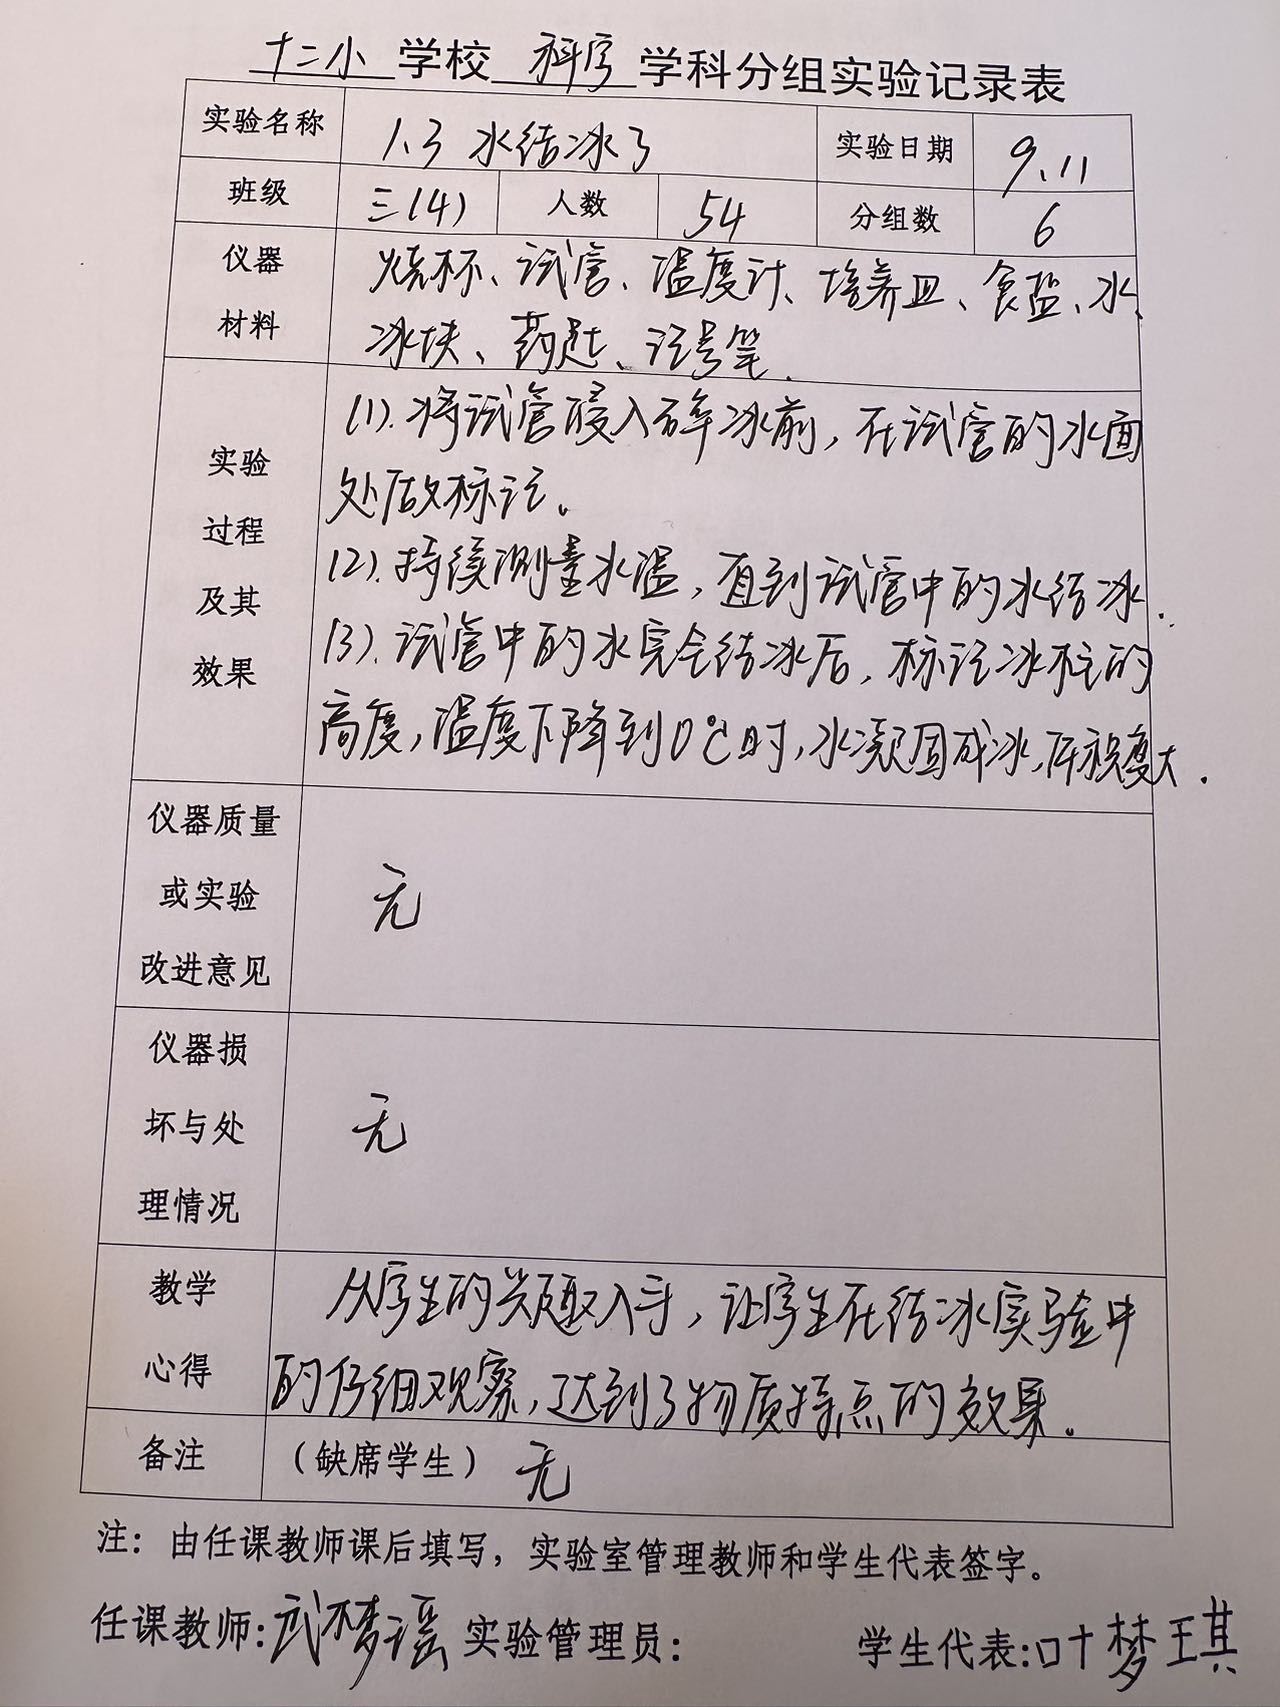 十二小 学校 科学 学科分组实验记录表
实验名称 1.3 水结冰了 实验日期 9.11
班级 三(4) 人数 54 分组数 6
仪器
材料
烧杯、试管、温度计、培养皿、食盐、水、
冰块、药匙、记号笔.
实验
过程
及其
效果
(1).将试管浸入碎冰前,在试管的水面
处做标记。
(2).持续测量水温,直到试管中的水结冰.
(3).试管中的水完全结冰后,标记冰柱的
高度,温度下降到0℃时,水凝固成冰,体积变大.
仪器质量
或实验
改进意见
无
仪器损
坏与处
理情况
无
教学
心得
从学生的兴趣入手,让学生在结冰实验中
的仔细观察,达到了物质特点的效果。
备注 (缺席学生) 无
注：由任课教师课后填写，实验室管理教师和学生代表签字。
任课教师:武梦瑶 实验管理员: 学生代表:叶梦琪